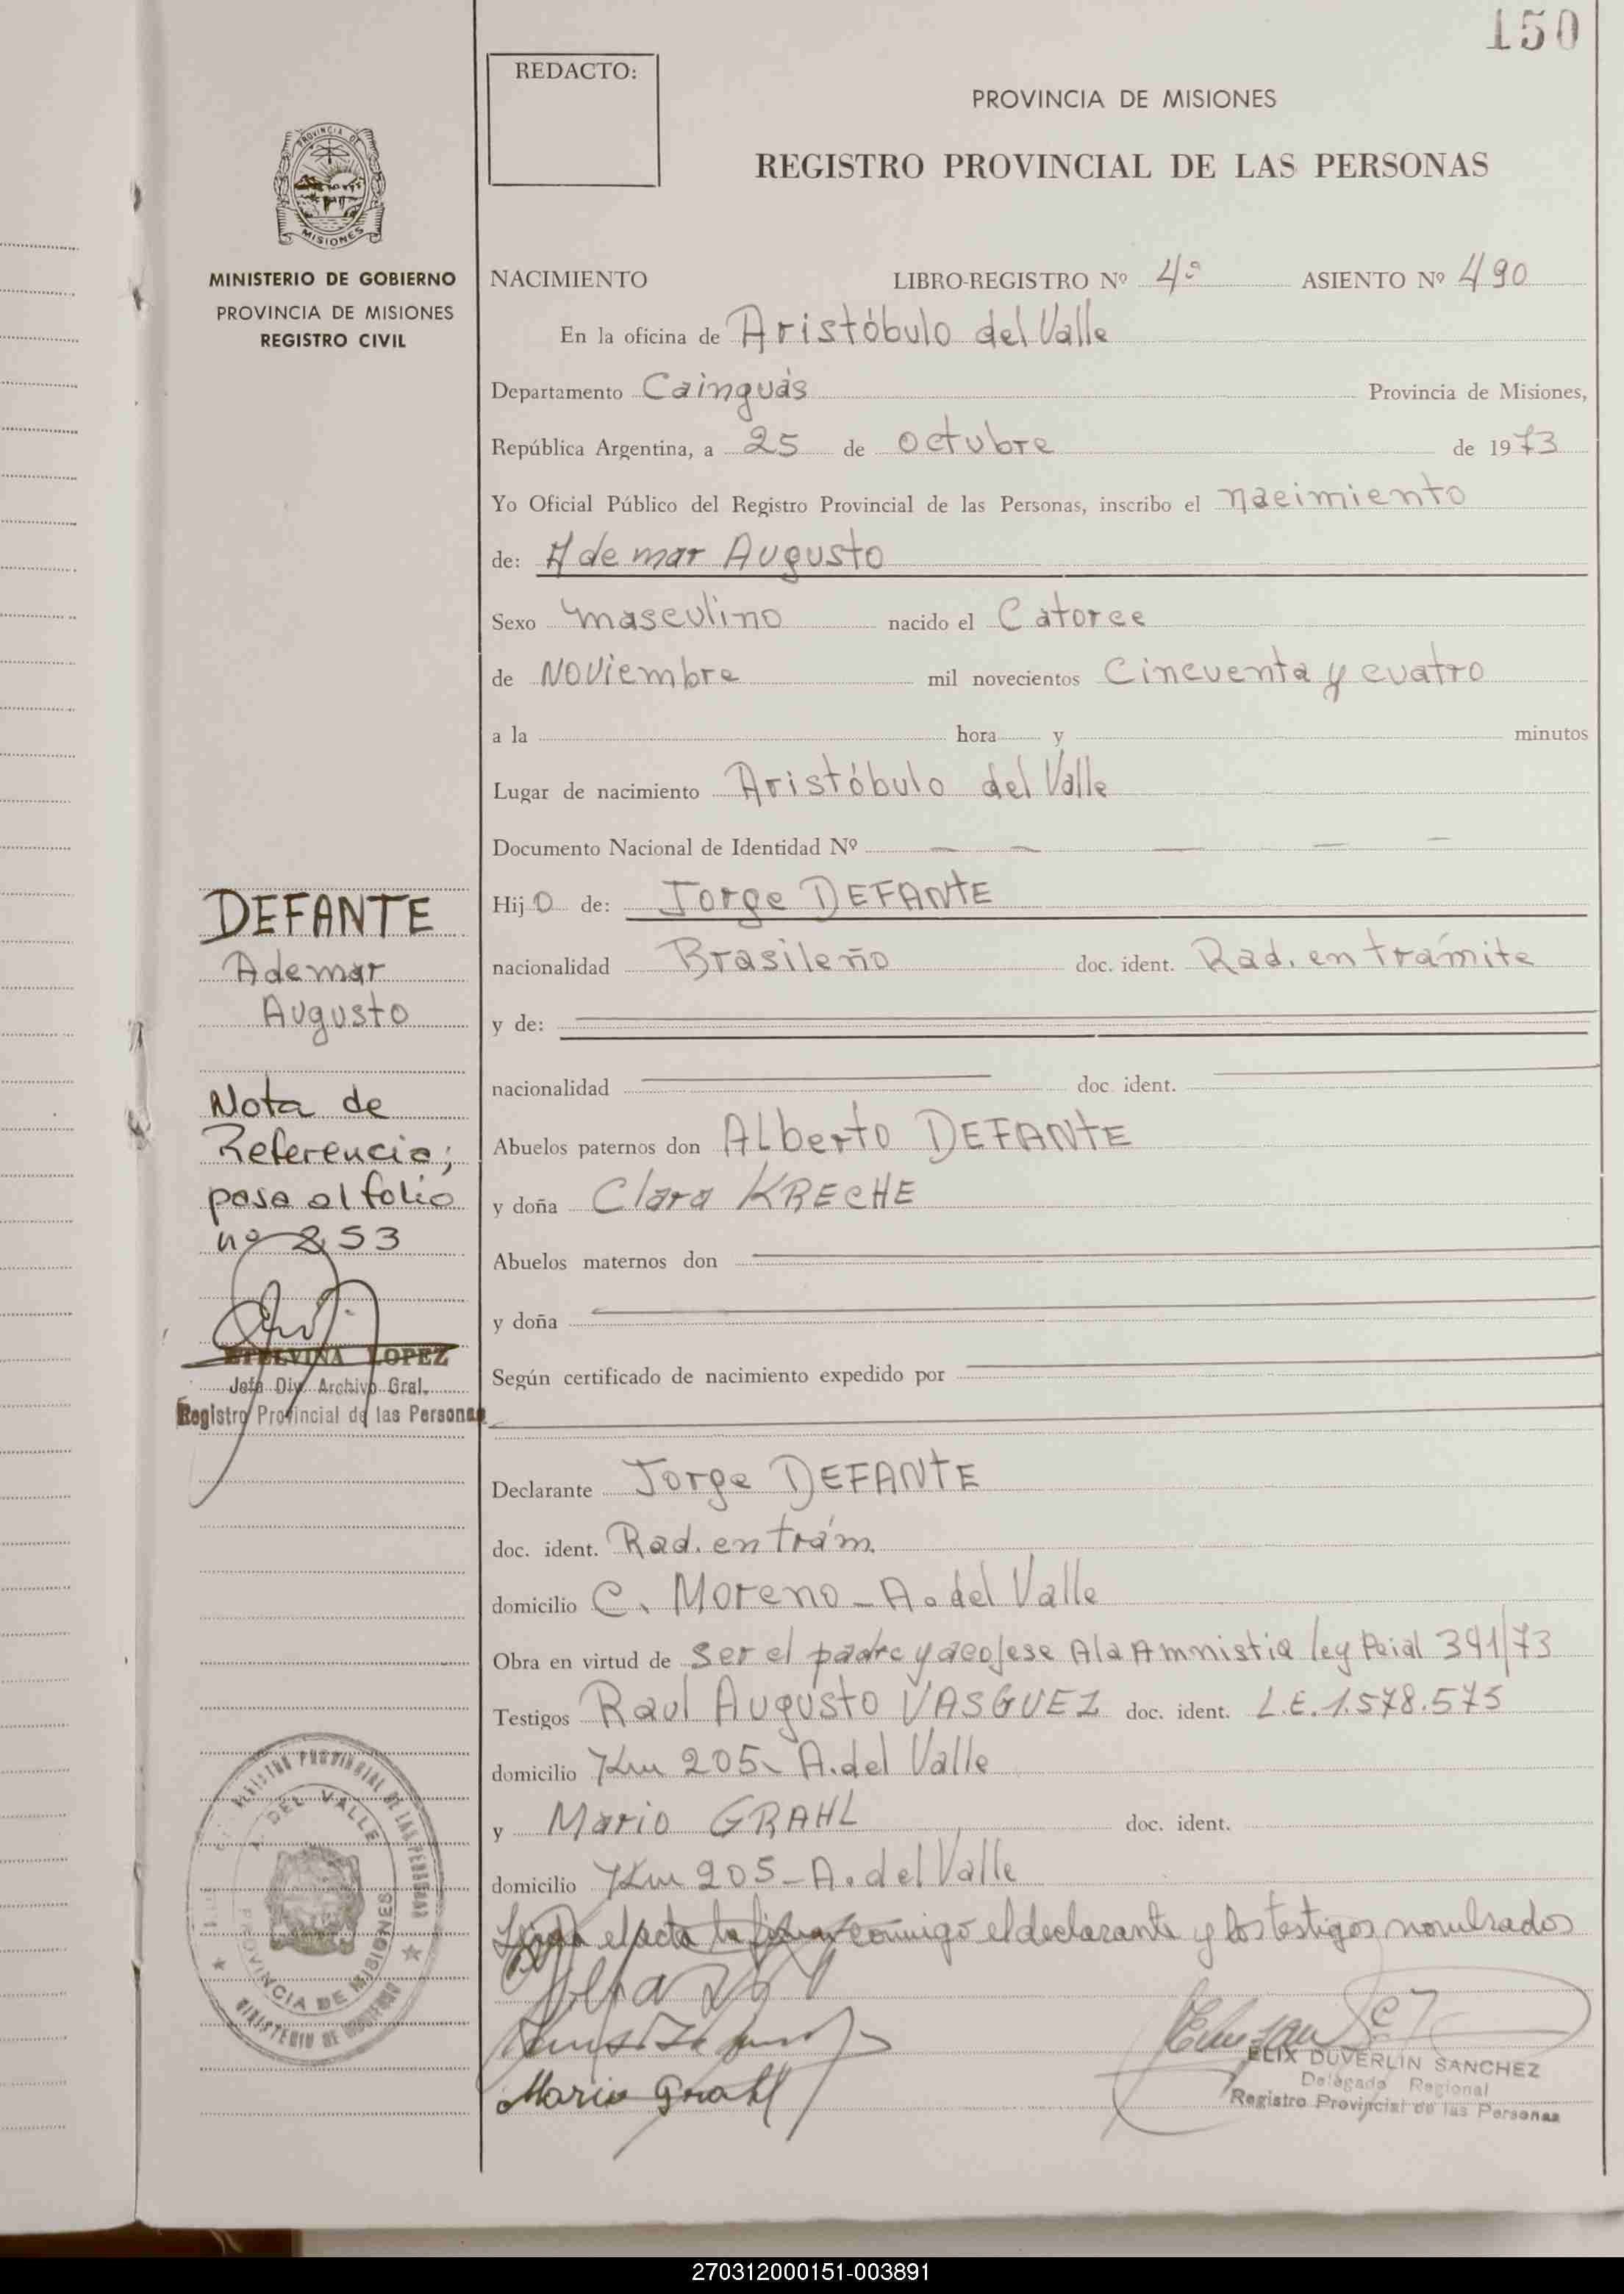 150
REDACTO:
PROVINCIA DE MISIONES
REGISTRO PROVINCIAL DE LAS PERSONAS
PROVINCIA DE
MISIONES
MINISTERIO DE GOBIERNO
PROVINCIA DE MISIONES
REGISTRO CIVIL
NACIMIENTO LIBRO-REGISTRO Nº 4º ASIENTO Nº 490
En la oficina de Aristóbulo del Valle
Departamento Cainguás Provincia de Misiones,
República Argentina, a 25 de octubre de 1973
Yo Oficial Público del Registro Provincial de las Personas, inscribo el nacimiento
de: Ademar Augusto
Sexo masculino nacido el Catorce
de Noviembre mil novecientos Cincuenta y cuatro
a la hora y minutos
Lugar de nacimiento Aristóbulo del Valle
Documento Nacional de Identidad Nº — — — — —
Hijo de: Jorge DEFANTE
nacionalidad Brasileño doc. ident. Rad. en trámite
y de:
nacionalidad doc. ident.
Abuelos paternos don Alberto DEFANTE
y doña Clara KRECHE
Abuelos maternos don
y doña
Según certificado de nacimiento expedido por
Declarante Jorge DEFANTE
doc. ident. Rad. en trám.
domicilio C. Moreno - A. del Valle
Obra en virtud de ser el padre y acojese A la Amnistia ley Pcial 391/73
Testigos Raul Augusto VASGUEZ doc. ident. L.E. 1.578.575
domicilio Km 205 A. del Valle
y Mario GRAHL doc. ident.
domicilio Km 205 - A. del Valle
el acta la conmigo el declarante y los testigos nombrados
Mario Grahl
ELIX DUVERLIN SANCHEZ
Delegado Regional
Registro Provincial de las Personas
DEFANTE
Ademar
Augusto
Nota de
Referencia;
pasa al folio
nº 253
ETELVINA LOPEZ
Jefa Div. Archivo Gral.
Registro Provincial de las Personas
REGISTRO PROVINCIAL DE LAS PERSONAS
A. DEL VALLE
PROVINCIA DE MISIONES
MINISTERIO DE GOBIERNO
270312000151-003891